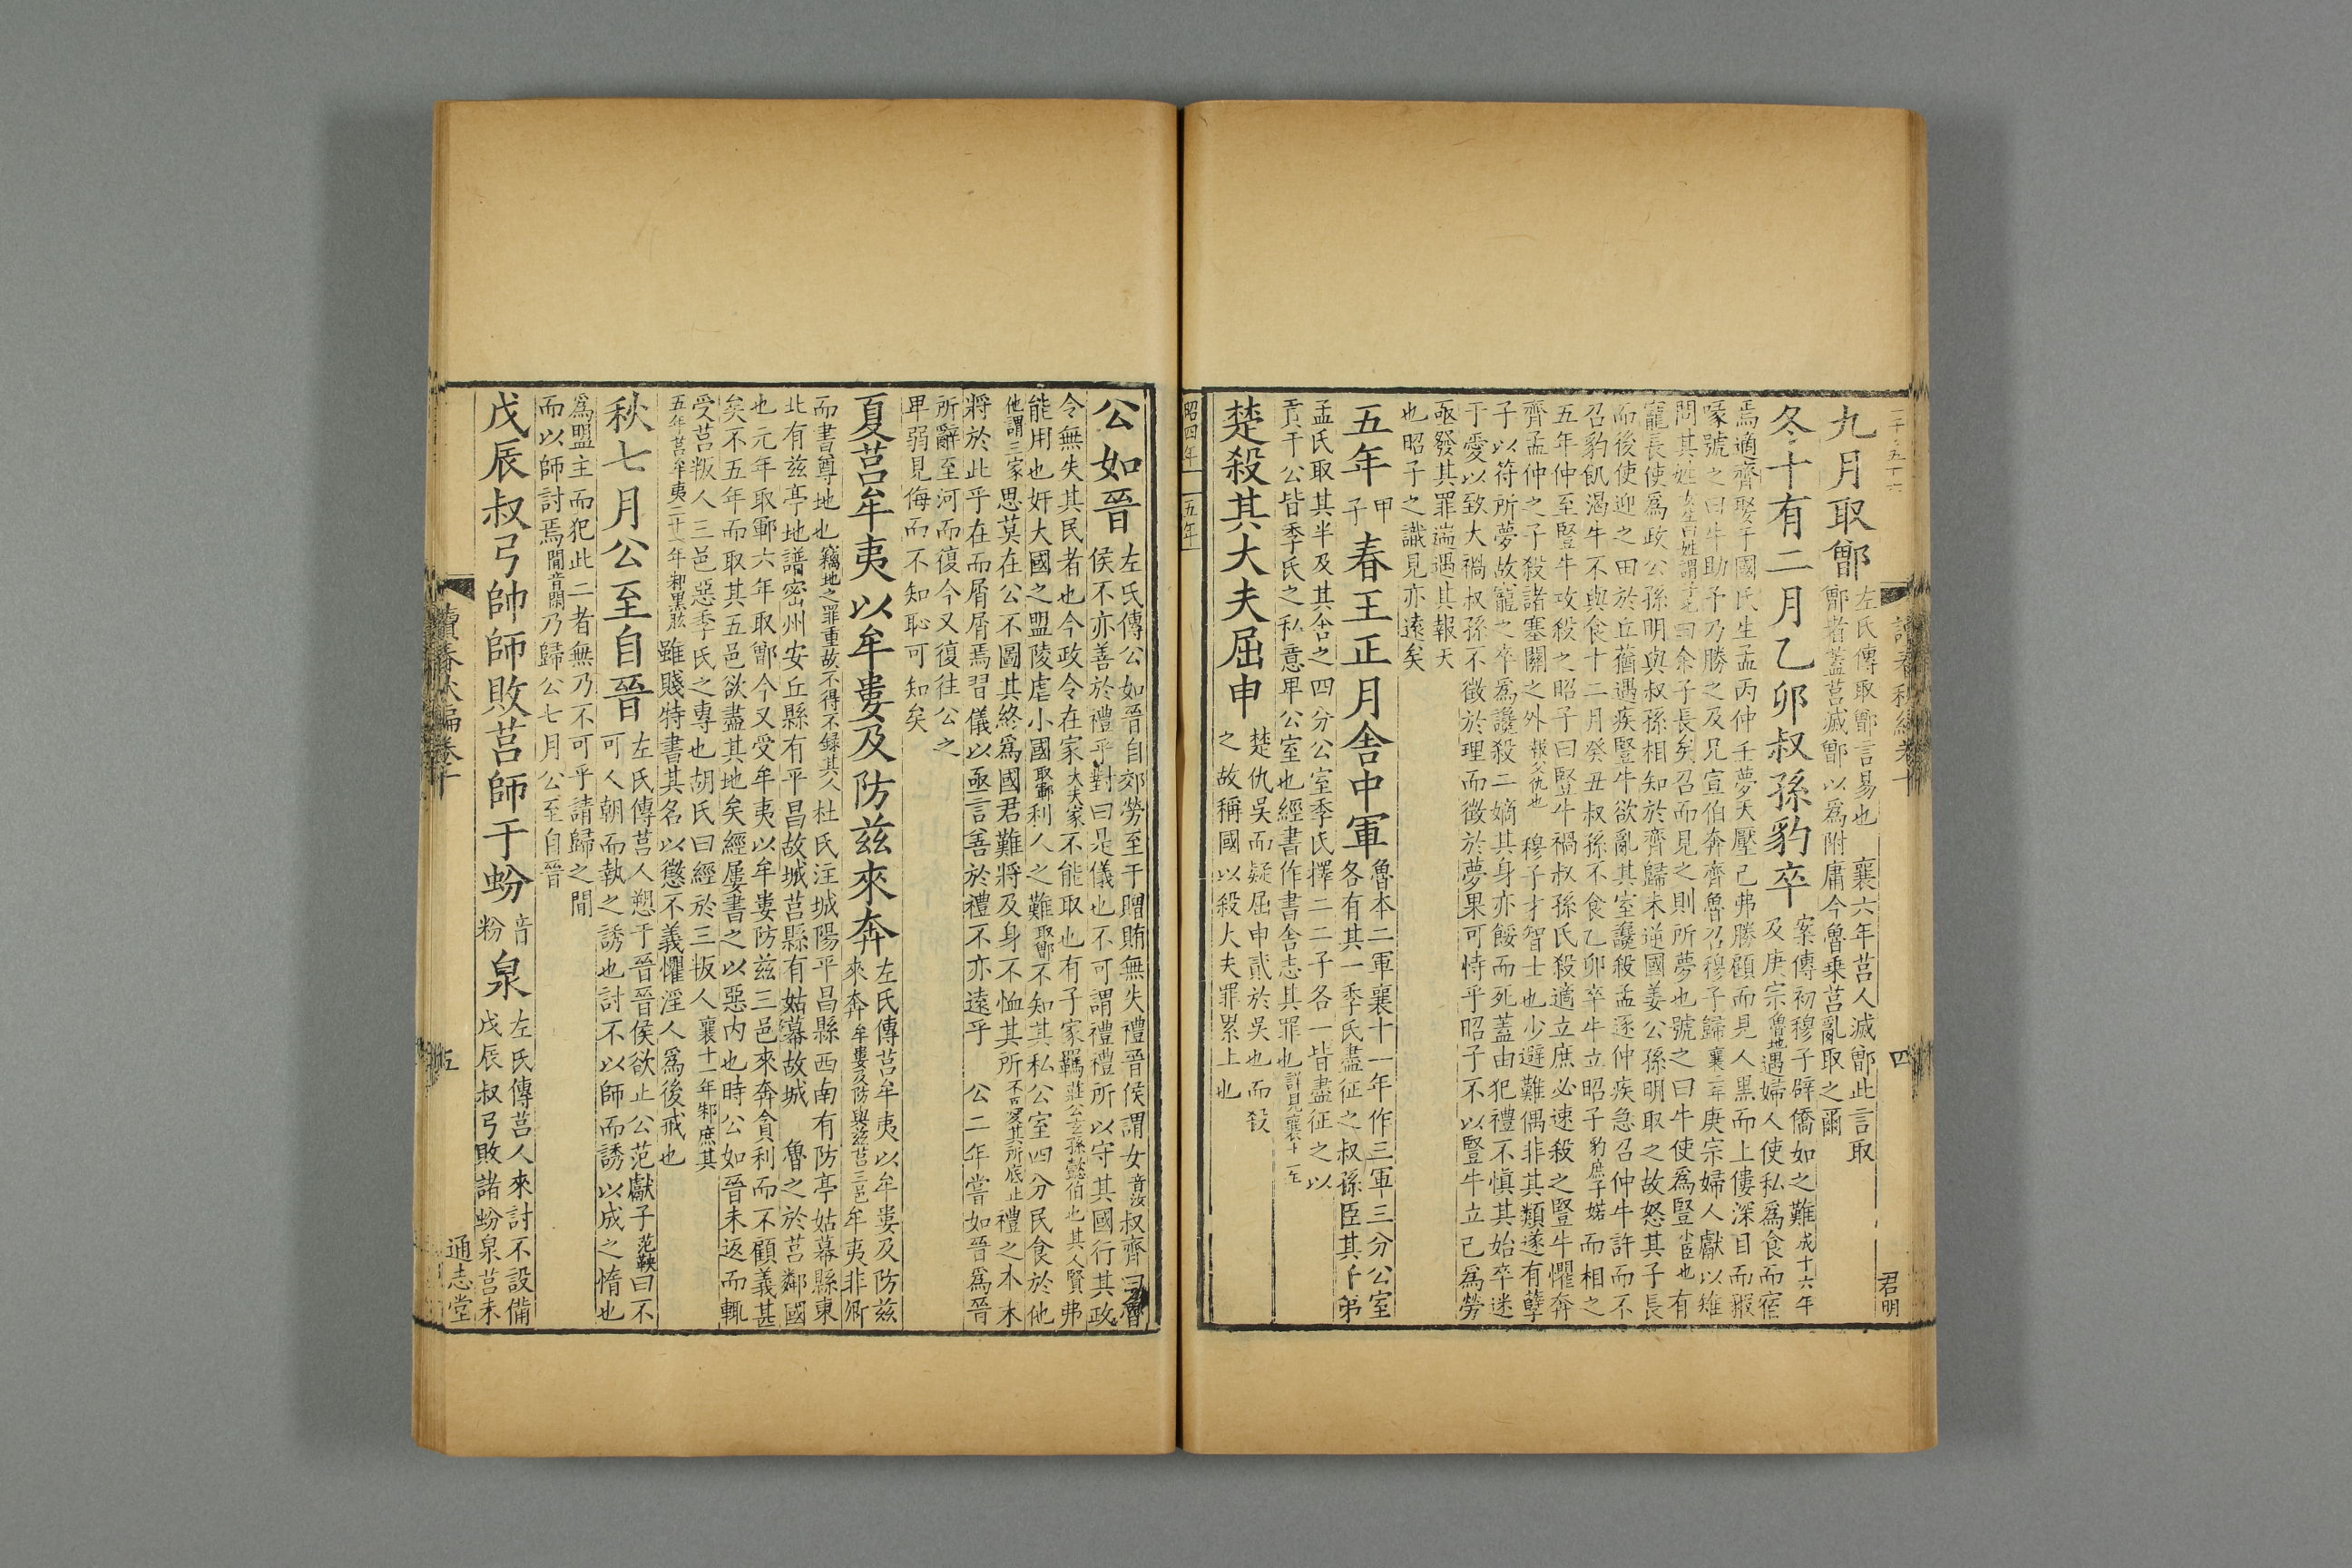 九月取鄫
左氏傳取鄫言易也　襄六年莒人滅鄫此言取
鄫者蓋莒滅鄫以爲附庸今魯乗莒亂取之爾
冬十有二月乙卯叔孫豹卒
案傳初穆子辟僑如之難成十六年
及庚宗魯地遇婦人使私爲食而宿
焉適齊娶于國氏生孟丙仲壬夢天壓己弗勝顧而見人黑而上僂深目而豭
喙號之曰牛助予乃勝之及兄宣伯奔齊魯召穆子歸襄二年庚宗婦人獻以雉
問其姓女生曰姓謂子也曰余子長矣召而見之則所夢也號之曰牛使爲豎小臣也有
寵長使爲政公孫明與叔孫相知於齊歸未逆國姜公孫明取之故怒其子長
而後使迎之田於丘蕕遇疾豎牛欲亂其室讒殺孟逐仲疾急召仲牛許而不
召豹飢渴牛不與食十二月癸丑叔孫不食乙卯卒牛立昭子豹庶子婼而相之
五年仲至豎牛攻殺之昭子曰豎牛禍叔孫氏殺適立庶必速殺之豎牛懼奔
齊孟仲之子殺諸塞關之外報父仇也　穆子才智士也少避難偶非其類遂有孽
子以符所夢故寵之卒爲讒殺二嫡其身亦餒而死蓋由犯禮不愼其始卒迷
于愛以致大禍叔孫不徵於理而徵於夢果可恃乎昭子不以豎牛立己爲勞
亟發其罪湍遇其報天
也昭子之識見亦遠矣
五年
甲
子
春王正月舍中軍
魯本二軍襄十一年作三軍三分公室
各有其一季氏盡征之叔孫臣其子弟
孟氏取其半及其舍之四分公室季氏擇二二子各一皆盡征之以
貢于公皆季氏之私意卑公室也經書作書舍志其罪也詳見襄十一年
楚殺其大夫屈申
楚仇吳而疑屈申貳於吳也而殺
之故稱國以殺大夫罪累上也
昭四年　五年
讀春秋編卷十
四
君明
公如晉
左氏傳公如晉自郊勞至于贈賄無失禮晉侯謂女音汝叔齊曰魯
侯不亦善於禮乎對曰是儀也不可謂禮禮所以守其國行其政
令無失其民者也今政令在家大夫家不能取也有子家羈莊公玄孫懿伯也其人賢弗
能用也奸大國之盟陵虐小國取鄆利人之難取鄫不知其私公室四分民食於他
他謂三家思莫在公不圖其終爲國君難將及身不恤其所不憂其所底止禮之本末
將於此乎在而屑屑焉習儀以亟言善於禮不亦遠乎　公二年嘗如晉爲晉
所辭至河而復今又復往公之
卑弱見侮而不知恥可知矣
夏莒牟夷以牟婁及防茲來奔
左氏傳莒牟夷以牟婁及防茲
來奔牟婁及防與茲莒三邑牟夷非卿
而書尊地也竊地之罪重故不得不録其人杜氏注城陽平昌縣西南有防亭姑幕縣東
北有茲亭地譜密州安丘縣有平昌故城莒縣有姑幕故城　魯之於莒鄰國
也元年取鄆六年取鄫今又受牟夷以牟婁防茲三邑來奔貪利而不顧義甚
矣不五年而取其五邑欲盡其地矣經屢書之以惡内也時公如晉未返而輒
受莒叛人三邑惡季氏之專也胡氏曰經於三叛人襄十一年邾庶其
五年莒牟夷三十一年邾黑肱雖賤特書其名以懲不義懼淫人爲後戒也
秋七月公至自晉
左氏傳莒人愬于晉晉侯欲止公范獻子范鞅曰不
可人朝而執之誘也討不以師而誘以成之惰也
爲盟主而犯此二者無乃不可乎請歸之間
而以師討焉間音閑乃歸公七月公至自晉
戊辰叔弓帥師敗莒師于蚡
音
粉
泉
左氏傳莒人來討不設備
戊辰叔弓敗諸蚡泉莒未
讀春秋編卷十
五
通志堂